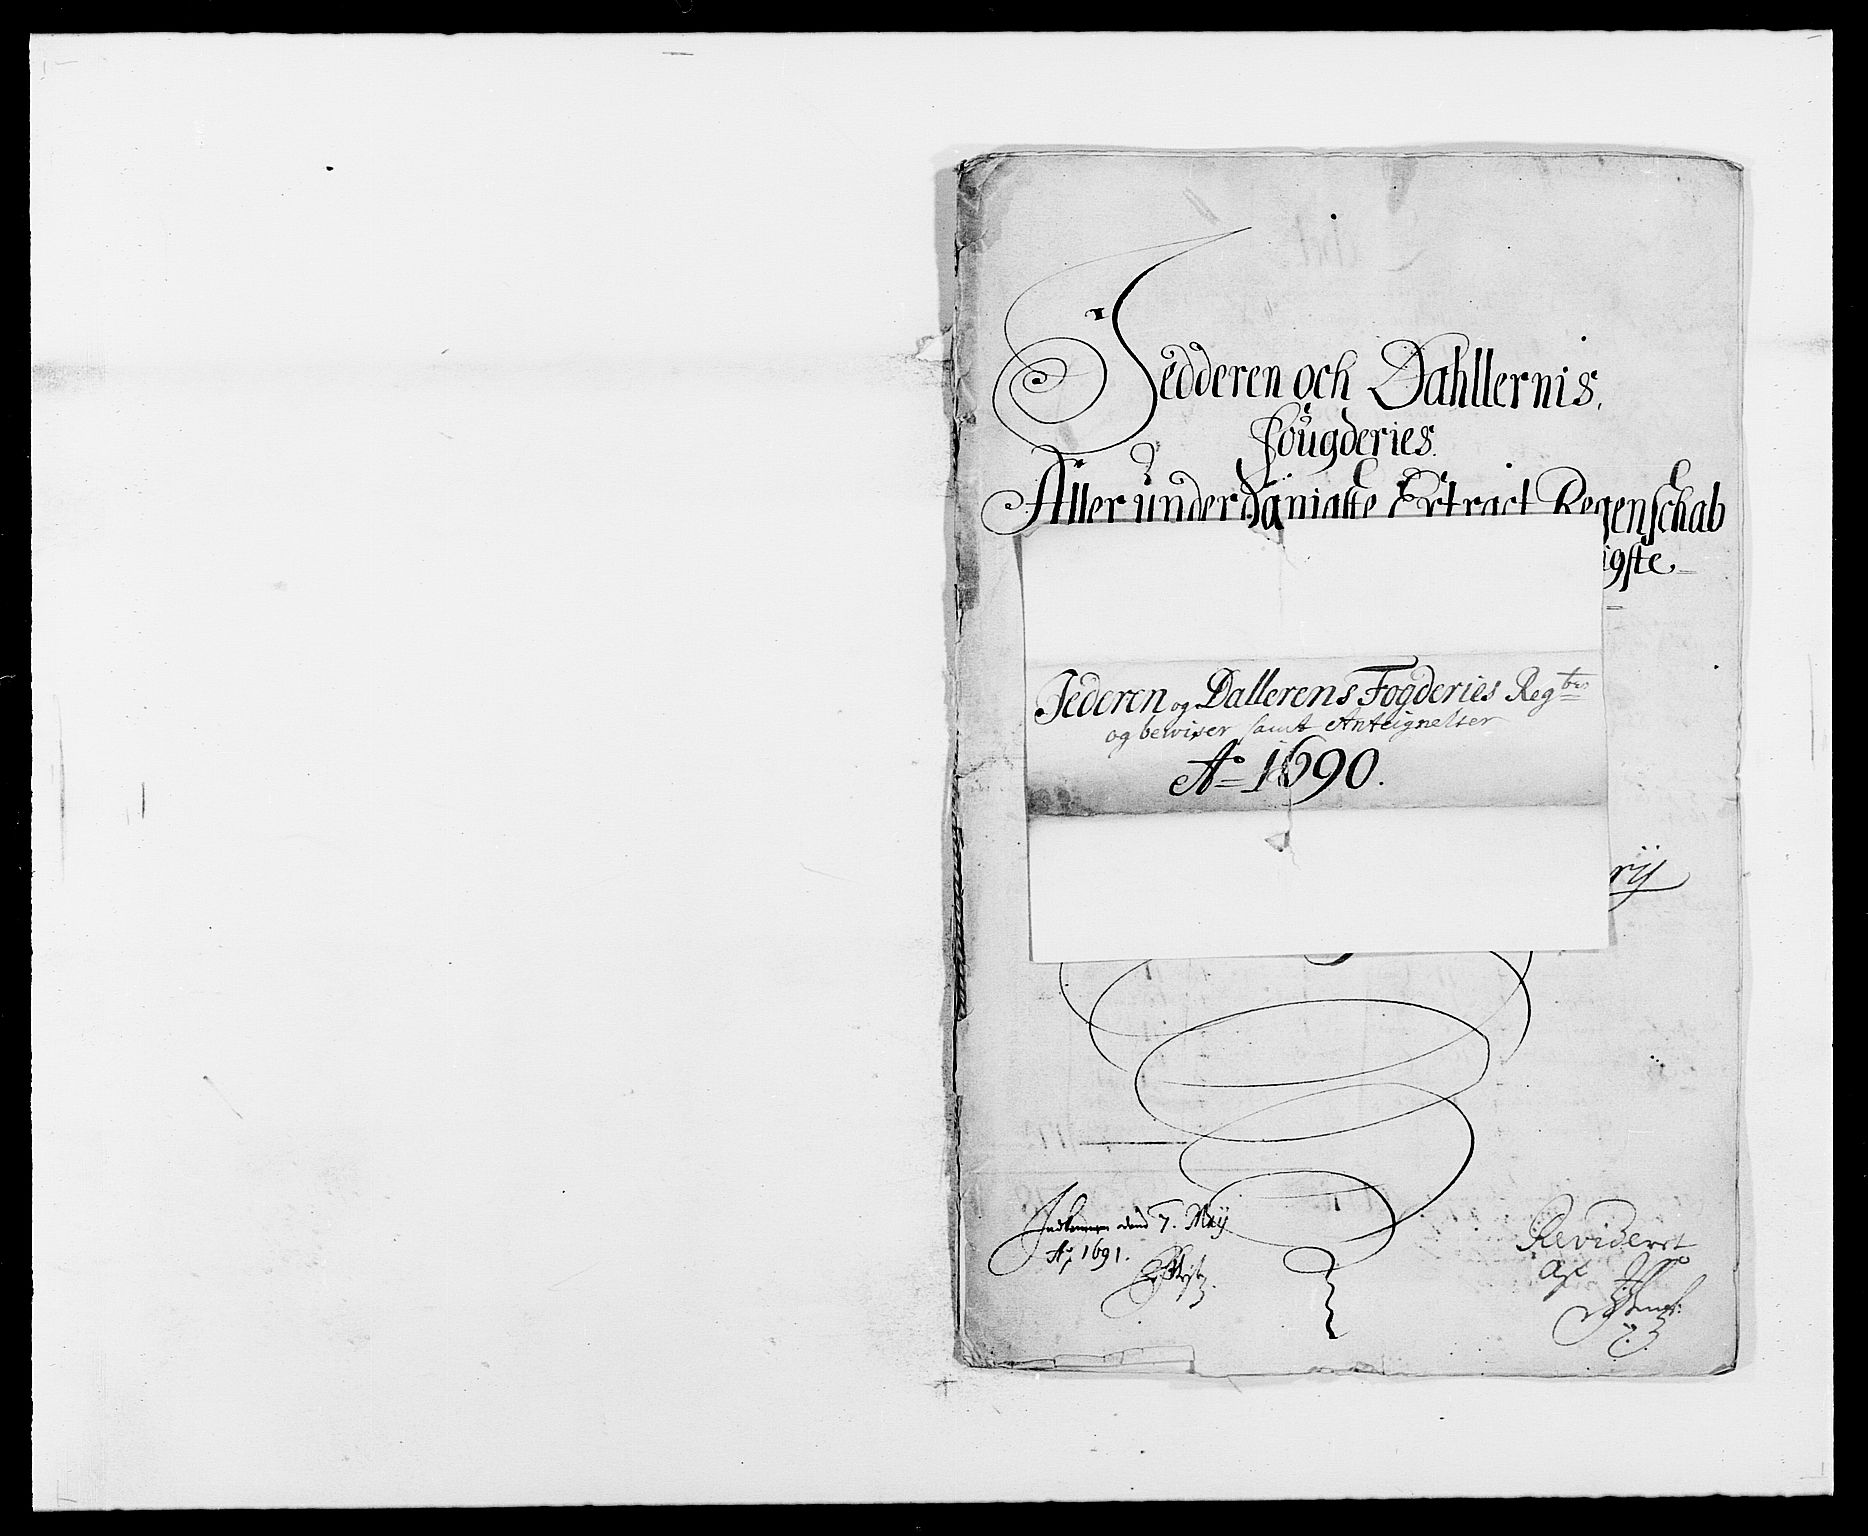 Jedderen och Dahllernis.
fougderies.
Aller underdänigste Extract Regenschab
igste
Jederen og Dallerens Fogderies Reg
og beviser samt Anteignelser
Ao 1690.
rij
Indkommen dend 7. Maij
Ao 1691.
Revideret
Af